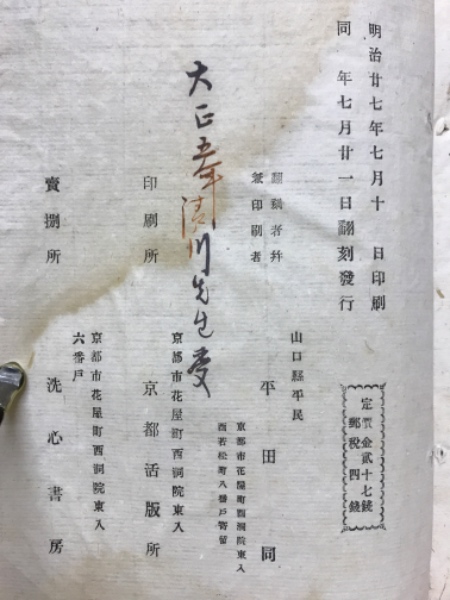 明治廿七年七月十　日印刷
同　年七月廿一日翻刻發行
定價金貳十七錢
郵税四錢
翻刻者幷
兼印刷者
山口縣平民
平田　同
京都市花屋町西洞院東入
西若松町八番戶寄留
大正五年清川先生受
印刷所
京都市花屋町西洞院東入
京都活版所
賣捌所
京都市花屋町西洞院東入
六番戶
洗心書房